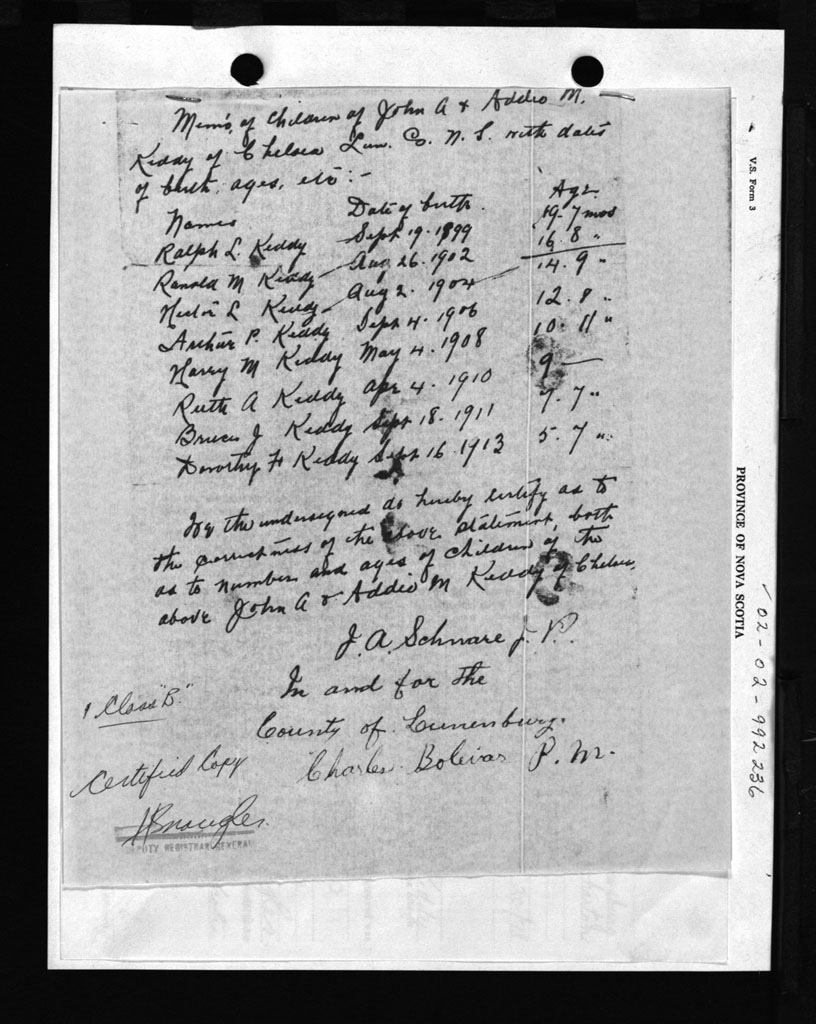 Mem's, of Children of John A & Addie M.
Keddy of Chelsea Lun. Co. N. S. with dates
of birth, ages, etc :-
Names Date of birth. Age
Ralph L. Keddy Sept 19. 1899 19. 7 mos
Ranald M Keddy Aug 26. 1902 16. 8 "
Hector L Keddy Aug 2. 1904 14. 9 "
Arthur P. Keddy Sept 4. 1906 12. 8 "
Harry M Keddy May 4. 1908 10. 11 "
Ruth A Keddy Apr 4. 1910 9 —
Bruce J Keddy Sept 18. 1911 7. 7 "
Dorothy H Keddy Sept 16. 1913 5. 7 "
We the undersigned do hereby certify as to
the correctness of the above statement, both
as to number and ages of children of the
above John A & Addie M Keddy of Chelsea,
J. A. Schnare J. P.
In and for the
County of Lunenburg.
Charles Bolivar P. M.
1 Class "B."
Certified Copy
DEPUTY REGISTRAR GENERAL
V.S. Form 3
PROVINCE OF NOVA SCOTIA
02-02-992236